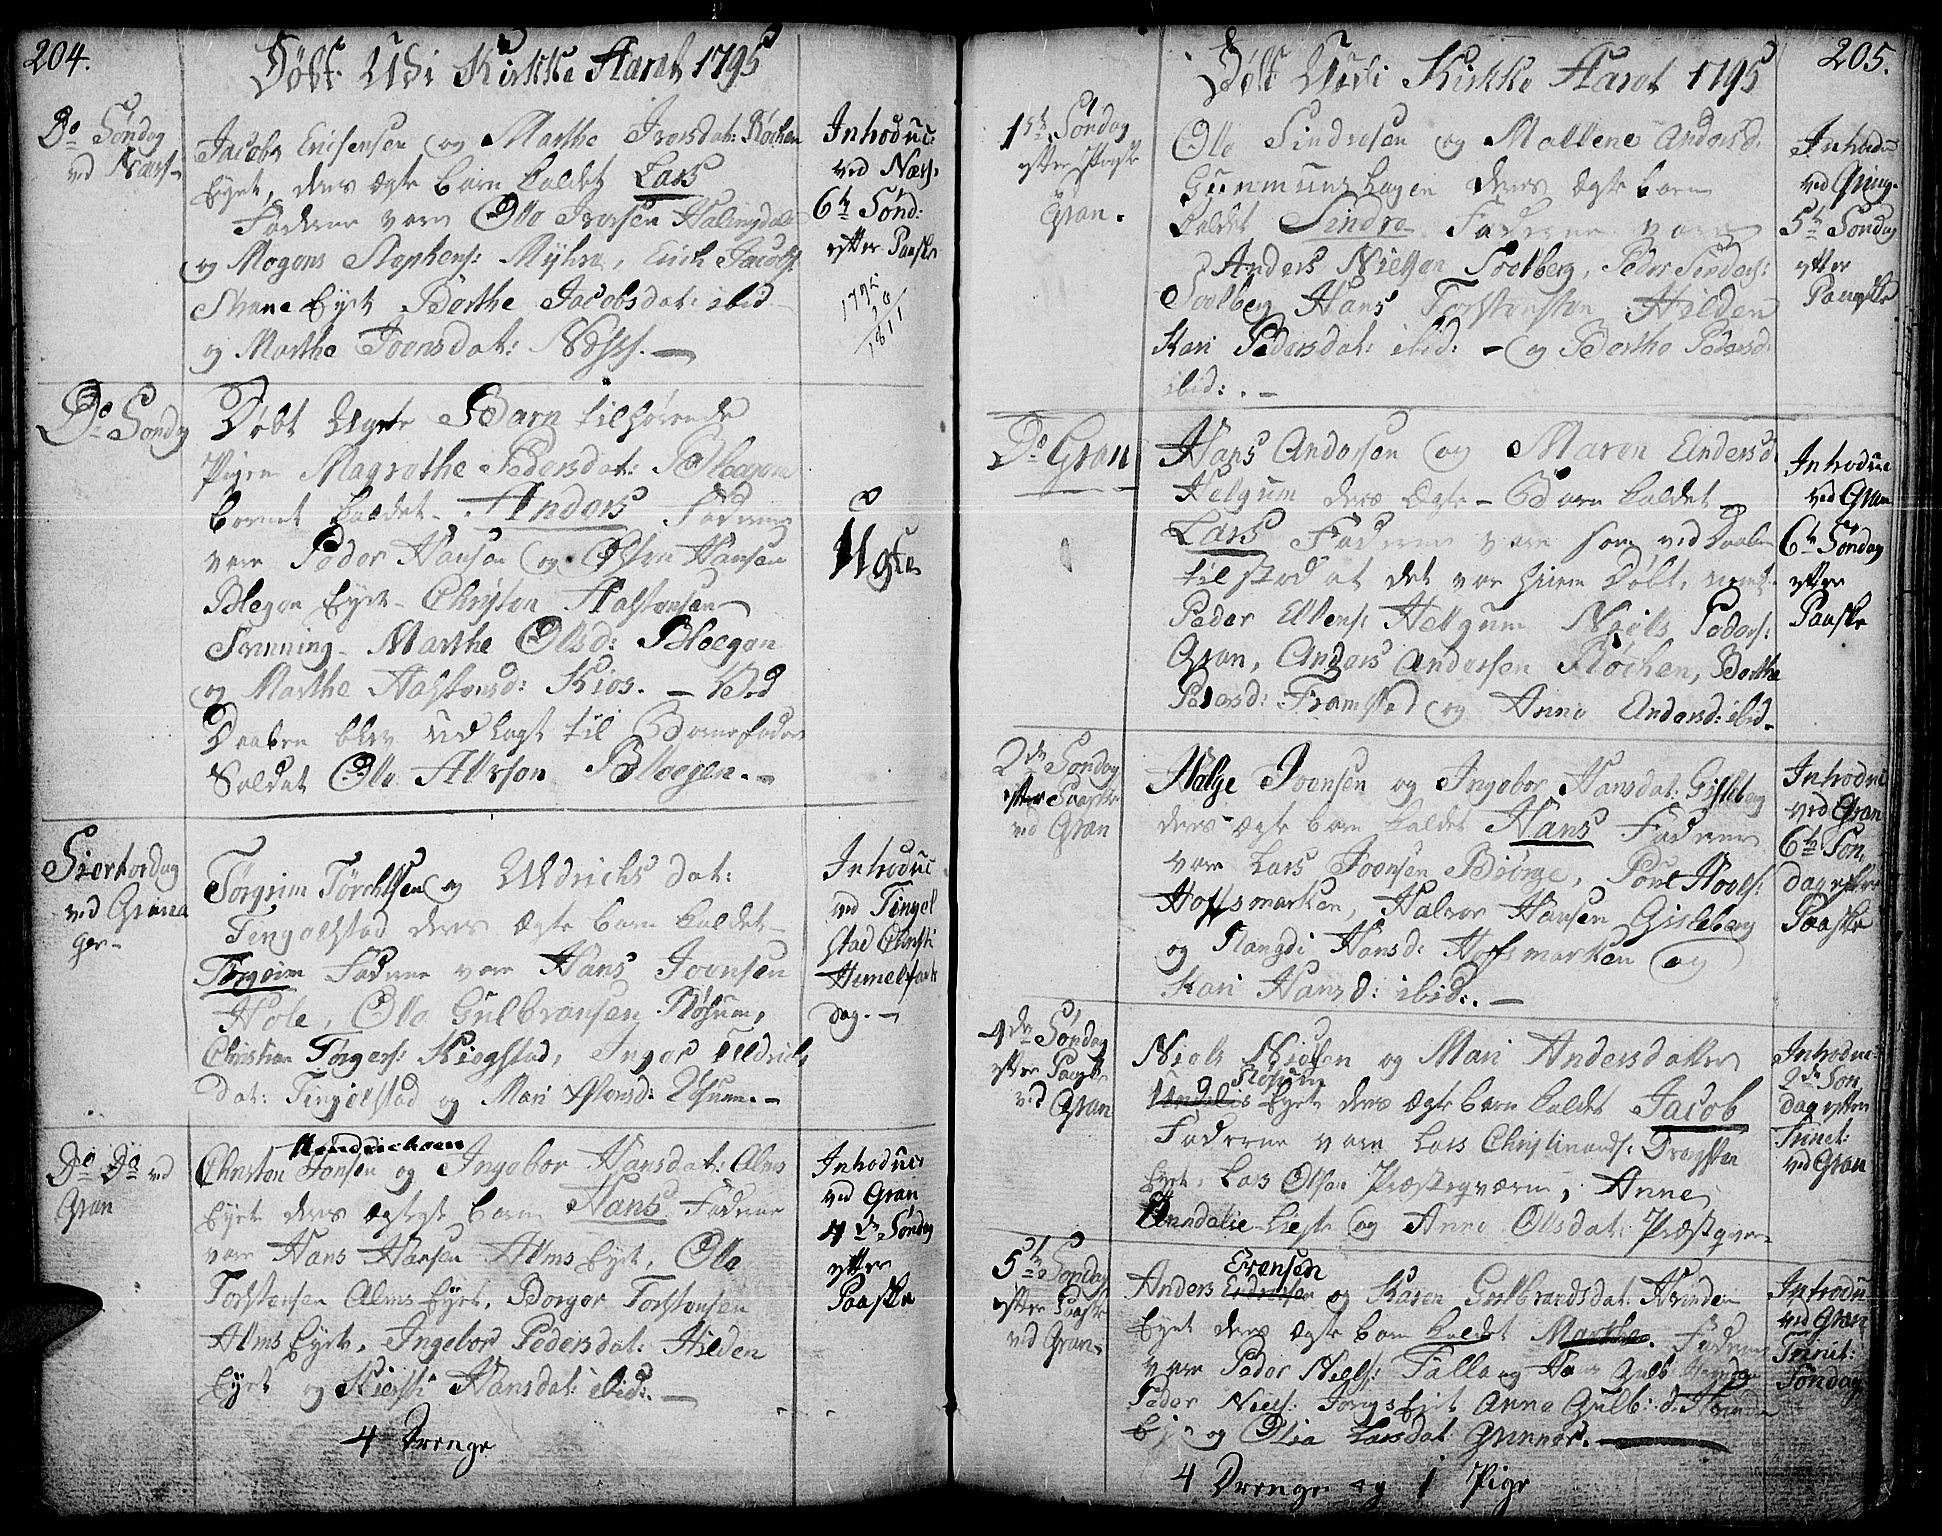 204.
Døbt Udi Kirkke Aaret 1795
Do Søndag
ved Næss
Jacob Enersen og Marthe Iversdat: Røchen
Eyet, deres ægte barn kaldet Lars
Faderne vare Ole Iversen Halingdal
og Mogens Stephens: Myhre, Erich Jacobs:
Eyet Berthe Jacobsdat: ibid
og Marthe Joensdat: Næss. —
Introduc:
ved Næss:
6te Sønd:
efter Paaske
1795
16
1811
Do Søndag
Døbt Uægte Barn tilhørende
Pigen Magrethe Pedersdat: Bleegen
barnet kaldet Anders Faderne
vare Peder Hansen og Hansen
Blegen Eyet Christen Halstensen
Svenning Marthe Olsd: Bleegen
og Marthe Halstensd: Kios. — Ved
Daaben blev udlagt til Barnefader
Soldat Ole Alfson Bleegen. —
Uægte
Skiertorsdag
ved Grina
ger
Torgrim Torchelsen og Uldrichsdat:
Tingelstad deres ægte barn kaldet
Torgeim Faderne vare Hans Joensen
Hole, Ole Gulbransen Røsum,
Christian Torgers: Kiogstad, Inger Uldrichs
dat: Tingelstad og Mari
Introduc
ved Tingel
stad Christi
Himelfarts
dag. —
Do Do ved
Gran
Hendrichsen
Christen Hansen og Ingebor Hansdat: Alms
Eyet deres ægte barn Hans Faderne
vare Hans Hansen Alms Eyet, Ole
Torstensen Alms Eyet, Borger Torstensen
Alms Eyet, Ingebor Pedersdat: Hilden
Eyet og Kiersti Hansdat: ibid: —
Introduc:
ved Gran
4de Søndag
efter
Paaske
4 Drenge
205.
Døbt Udi Kirkke Aaret 1795
1ste Søndag
efter Paaske
v
Gran.
Ole Sindresen og Mallene Andersd:
Gunmunshagen deres ægte barn
kaldet Sindre Faderne vare
Anders Nielsen Soelberg, Peder Sinders:
Soelberg Hans Torstensten Hilden
Kari Pedersdat: ibid: — og Berthe Pedersd:
ibid: . —
Introduc
ved
5te Søndag
efter
Paaske
Do Gran
Hans Andersen og Maren Andersd.
Helgum deres ægte Barn kaldet
Lars Faderne vare som ved Daaben
tilstod at det var hjeme Døbt,
Peder Ellens: Helgum Niels Peders:
Gran, Anders Andersen Røchen, Berthe
Pedersd: Framstad og Anne Andersd: ibid
Introduc
ved Gran
6te Søndag
efter
Paaske
2de Søndag
efter Paaske
ved Gran
Helge Joensen og Ingebor Hansdat: Gisleberg
deres ægte barn kaldet Hans Faderne
vare Lars Joensen Biørge, Poul
Hoffsmarken, Halvor Hansen Gisleberg
og Rangdi Hansd: Hoffsmarken og
Kari Hansd: ibid: . —
Introduc
ved Gran
6te Søn
dag efter
Paaske
4de Søndag
efter Paaske
ved Gran
Niels Nielsen og Mari Andersdatter
Røsum
Eyet deres ægte barn kaldet Jacob
Faderne vare Lars Christiands: Dragsten
Eyet, Lars Olsen Præsteqværn, Anne
og Anne Olsdat: Præstqver
Introduc:
2de Søn
dag efter
Trinet:
ved Gran
5te Søndag
efter Paaske
ved Gran
Evensen
Anders og Karen Gulbrandsdat: Hvinden
Eyet deres ægte barn kaldet Marthe. Faderne
vare Peder Niels: Falla og
Peder Niels: Eyet Anne Gulb: d:
og Olia Larsdat Grinner. —
Introdu
ved Gran
Trinet:
Søndag
4 Drenge og 1 Pige